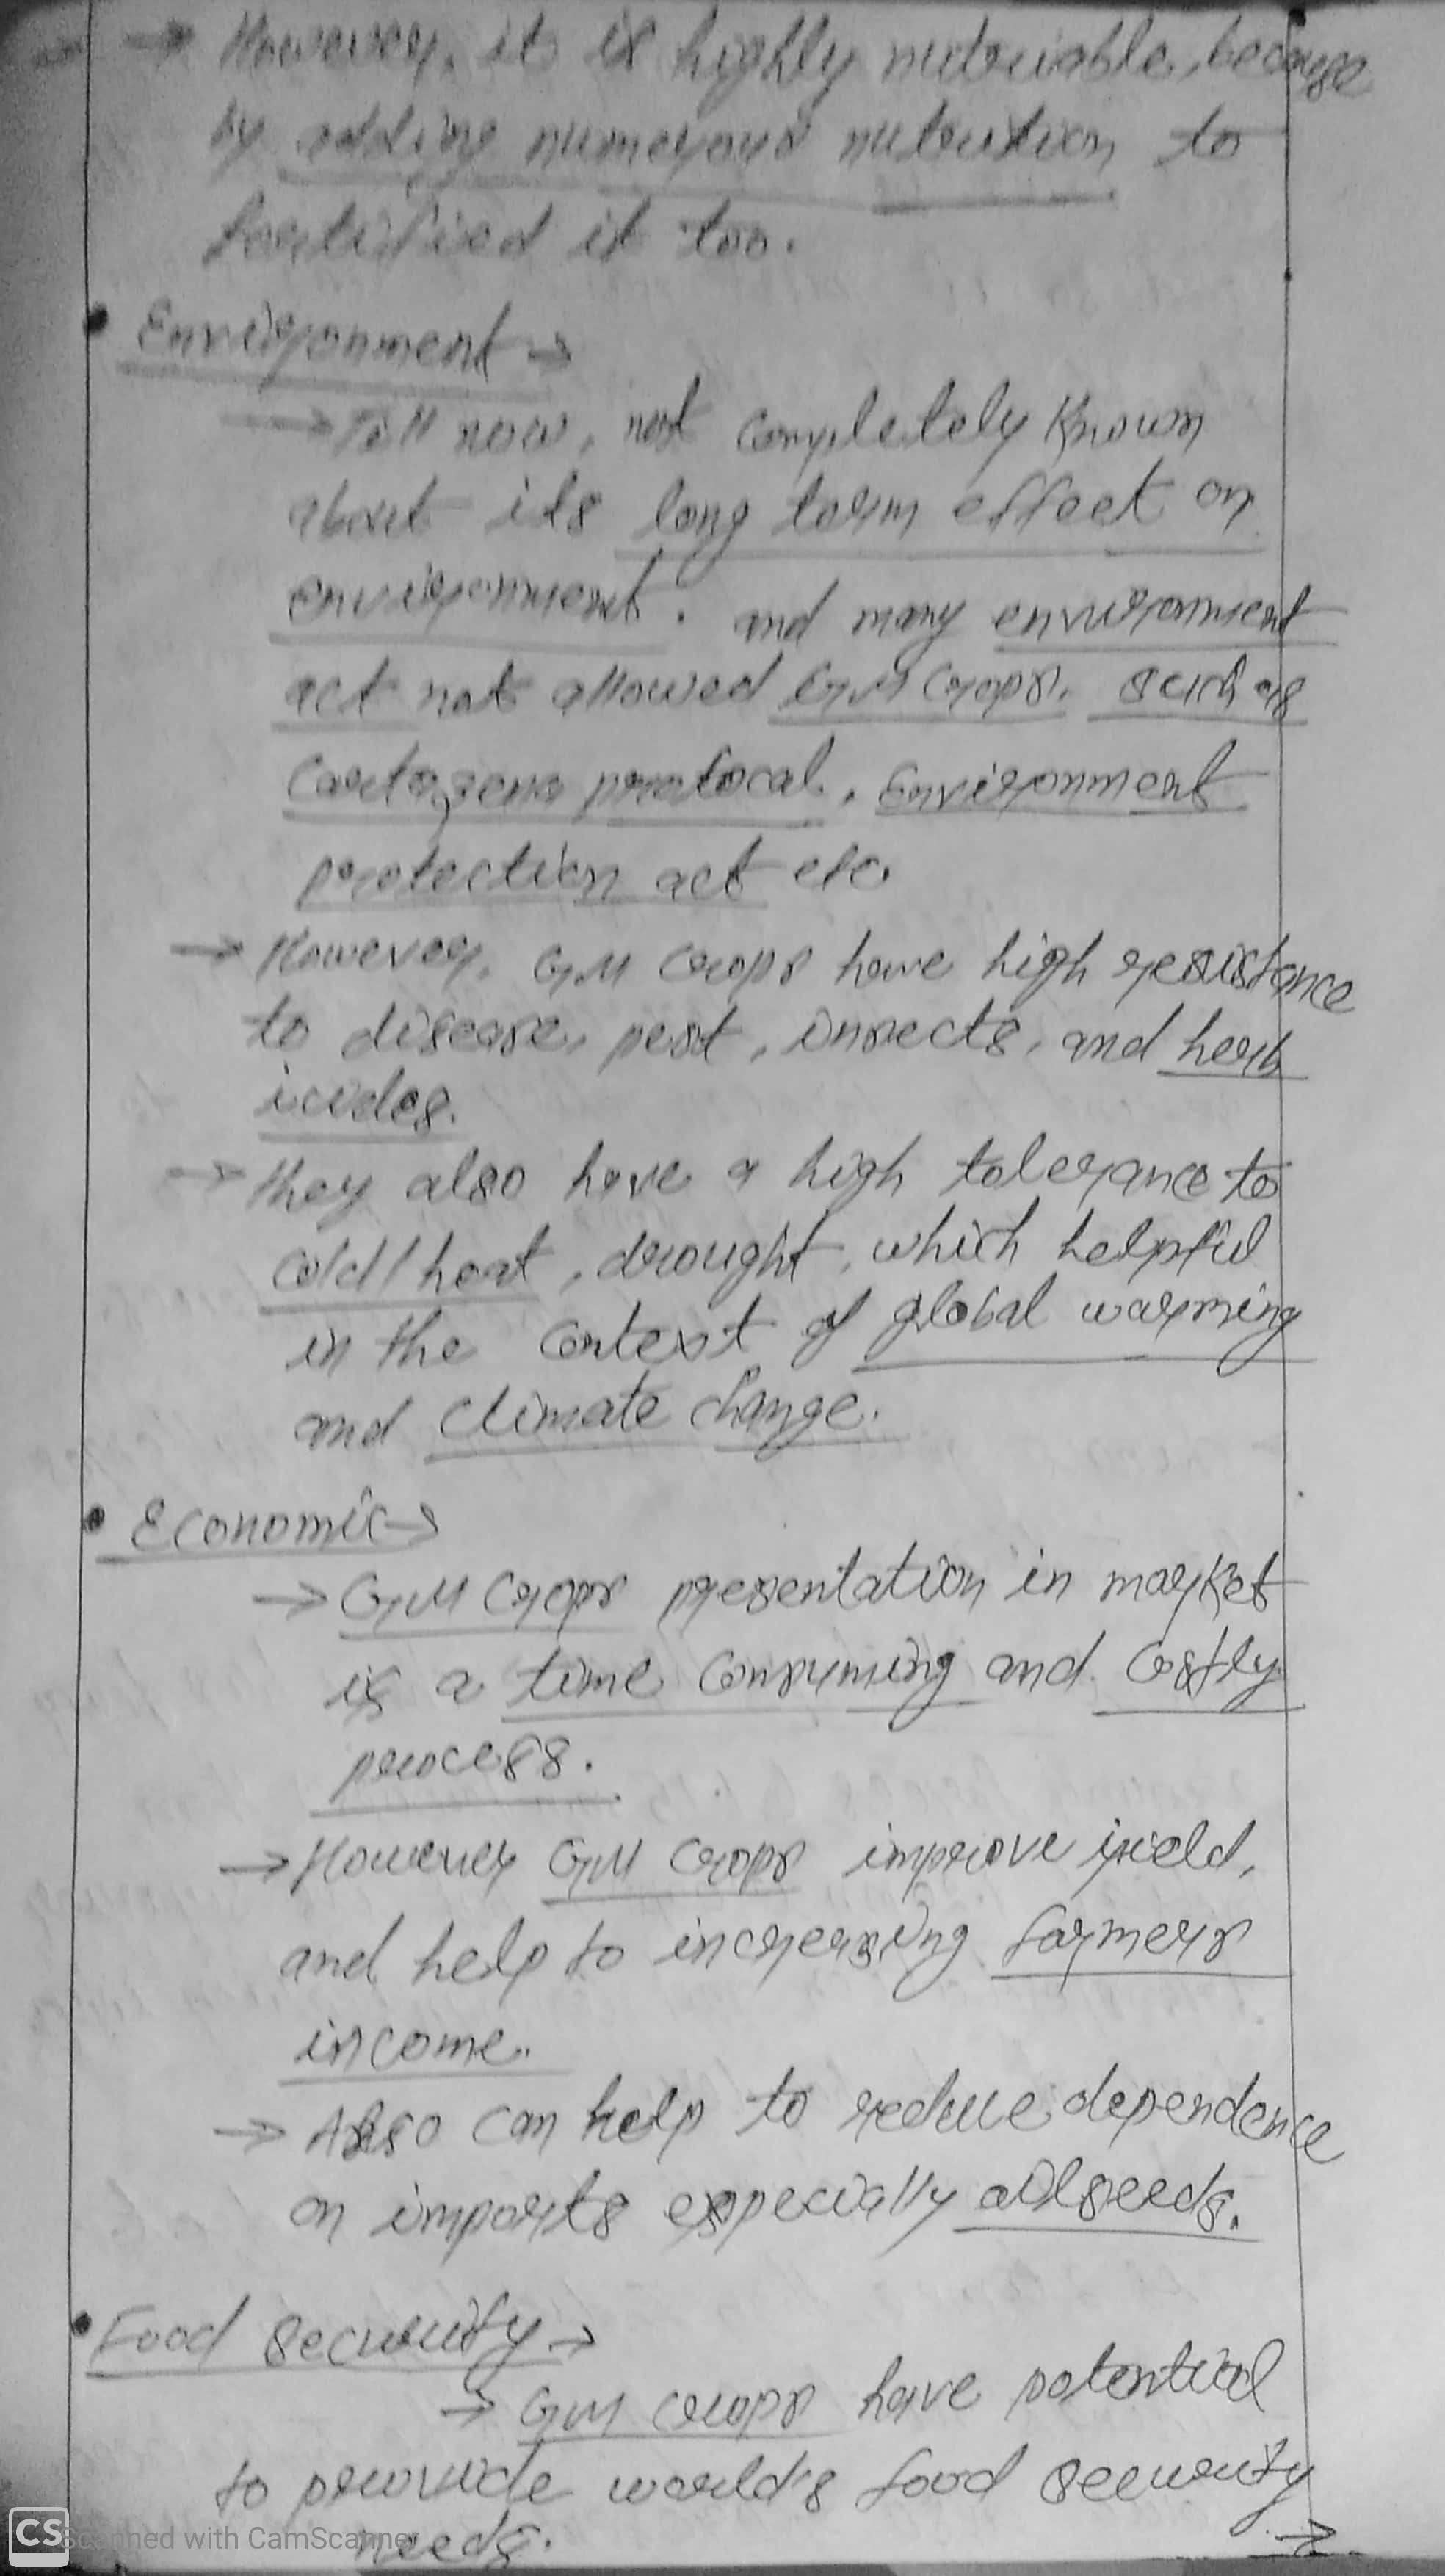 → However, it is highly nutriable, because
by adding numerous nutrution to
fortified it too.
• Environment →
→ Till now, not completely known
about its long term effect on
environment. and many environment
act not allowed GM Crops. such as
Cartagena protocal, Environment
protection act etc.
→ However, GM Crops have high resistance
to disease, pest, insects, and herb
icides.
→ they also have a high tolerance to
cold/heat, drought, which helpful
in the context of global warming
and climate change.
• Economic →
→ GM Crops presentation in market
is a time consuming and costly
process.
→ However GM Crops improve yield,
and help to increasing farmers
income.
→ Also can help to reduce dependence
on imports especially oilseeds.
• Food security →
→ GM crops have potential
to provide world's food security
needs.
→
CS Scanned with CamScanner